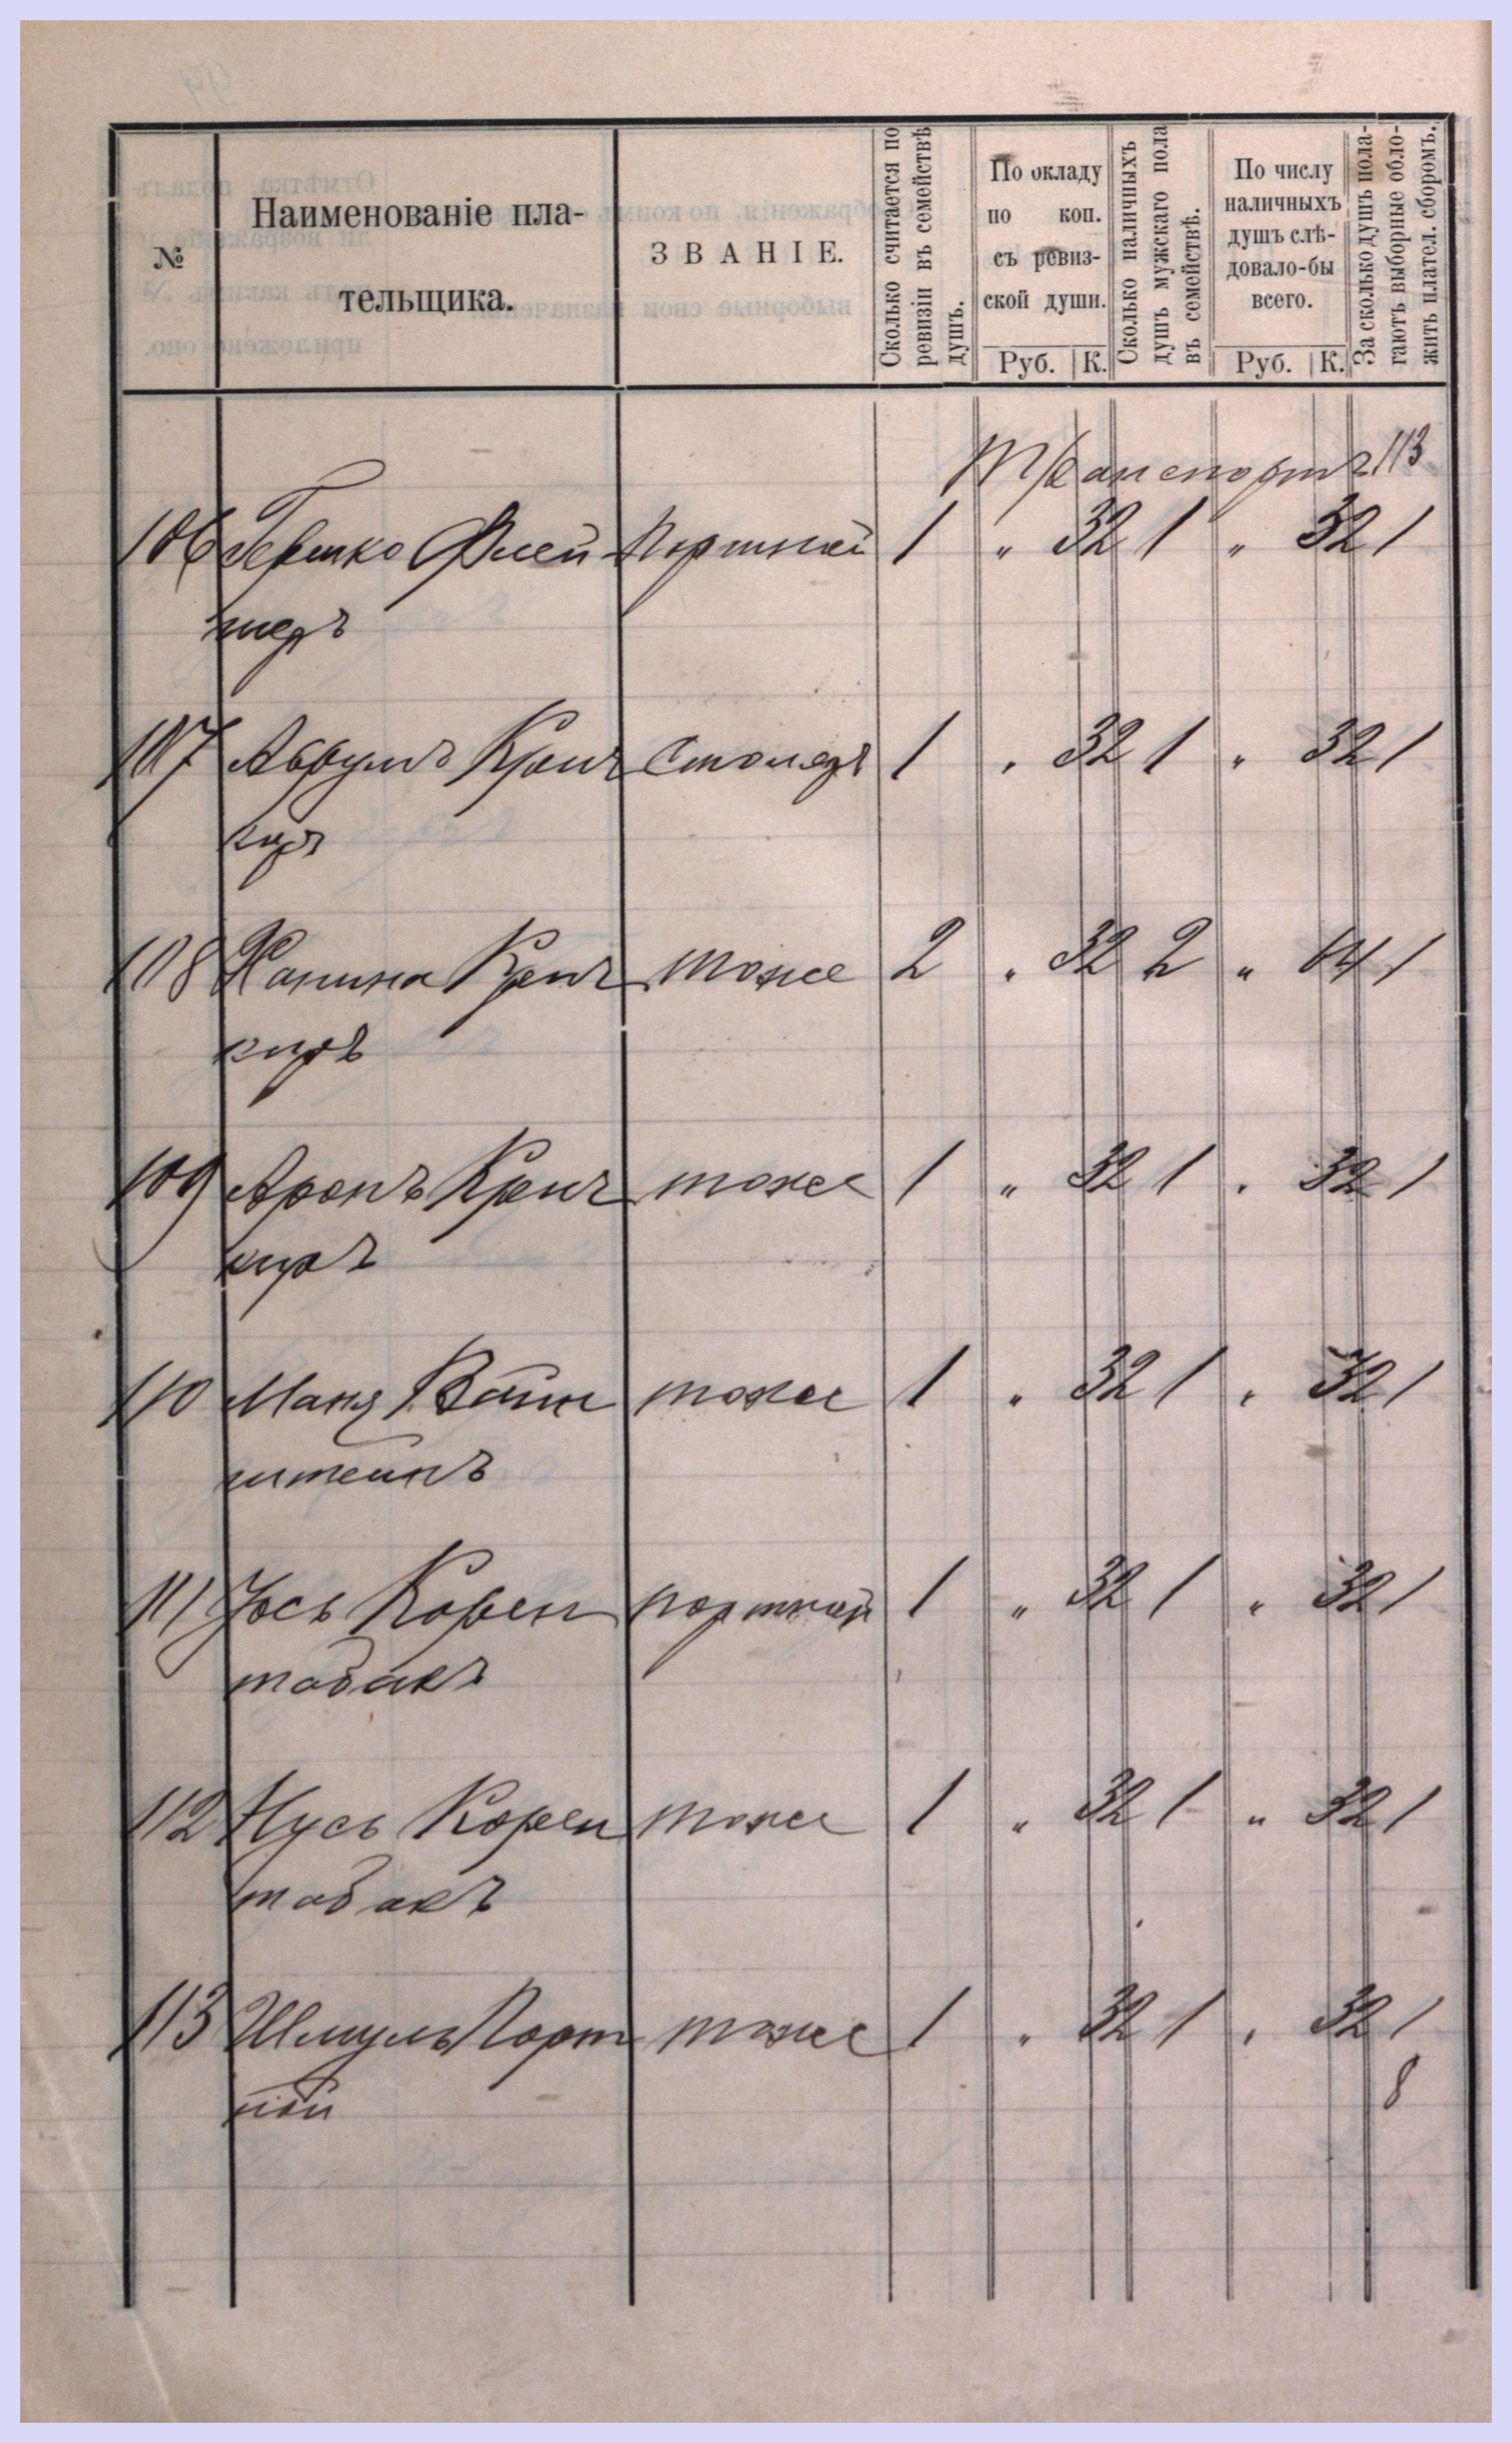 №
Наименованіе пла-
тельщика.
ЗВАНІЕ.
Сколько считается по
ревизіи въ семействѣ
душъ.
По окладу
по коп.
съ ревиз-
ской души.
Руб. К.
Сколько наличныхъ
душъ мужскаго пола
въ семействѣ.
По числу
наличныхъ
душъ слѣ-
довало-бы
всего.
Руб. К.
За сколько душъ пола-
гаютъ выборные обло-
жить плател. сборомъ.
Транспортъ 113
106 Гершко Флей Портной 1 " 32 1 " 32 1
шеръ
107 Аврумъ Крич Столяръ 1 " 32 1 " 32 1
керъ
108 Ханина Крич тоже 2 " 32 2 " 64 1
керъ
109 Аронъ Крич тоже 1 " 32 1 " 32 1
керъ
110 Маня Вайн тоже 1 " 32 1 " 32 1
штейнъ
111 Іось Корен портной 1 " 32 1 " 32 1
табакъ
112 Нусь Корен тоже 1 " 32 1 " 32 1
табакъ
113 Шмуль Порт тоже 1 " 32 1 " 32 1
ной
8